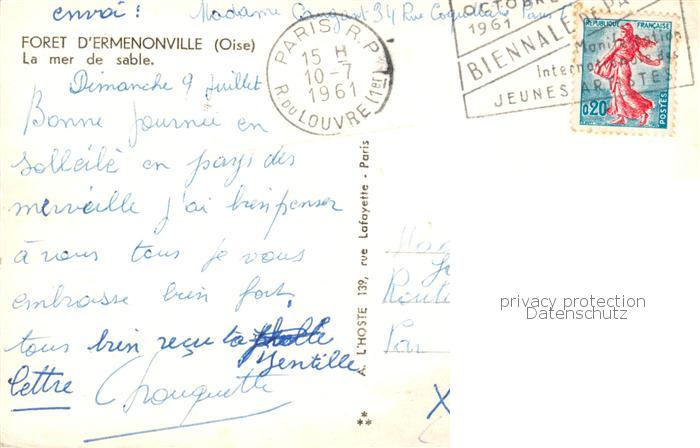 envoi : Madame 34 Rue Paris
FORET D'ERMENONVILLE (Oise)
La mer de sable.
Dimanche 9 Juillet
Bonne journée en
solleilé en pays des
merveille j'ai bien penser
à vous tous je vous
embrasse bien fort
tous bien reçu ta
gentille
lettre
PARIS R.P.
15 H
10-7
1961
R. DU LOUVRE (1er)
OCTOBRE
1961
BIENNALE DE PARIS
Manifestation
Internationale des
JEUNES ARTISTES
REPUBLIQUE FRANÇAISE
0,20
POSTES
A. L'HOSTE 139, rue Lafayette - Paris
Route
Par
privacy protection
Datenschutz